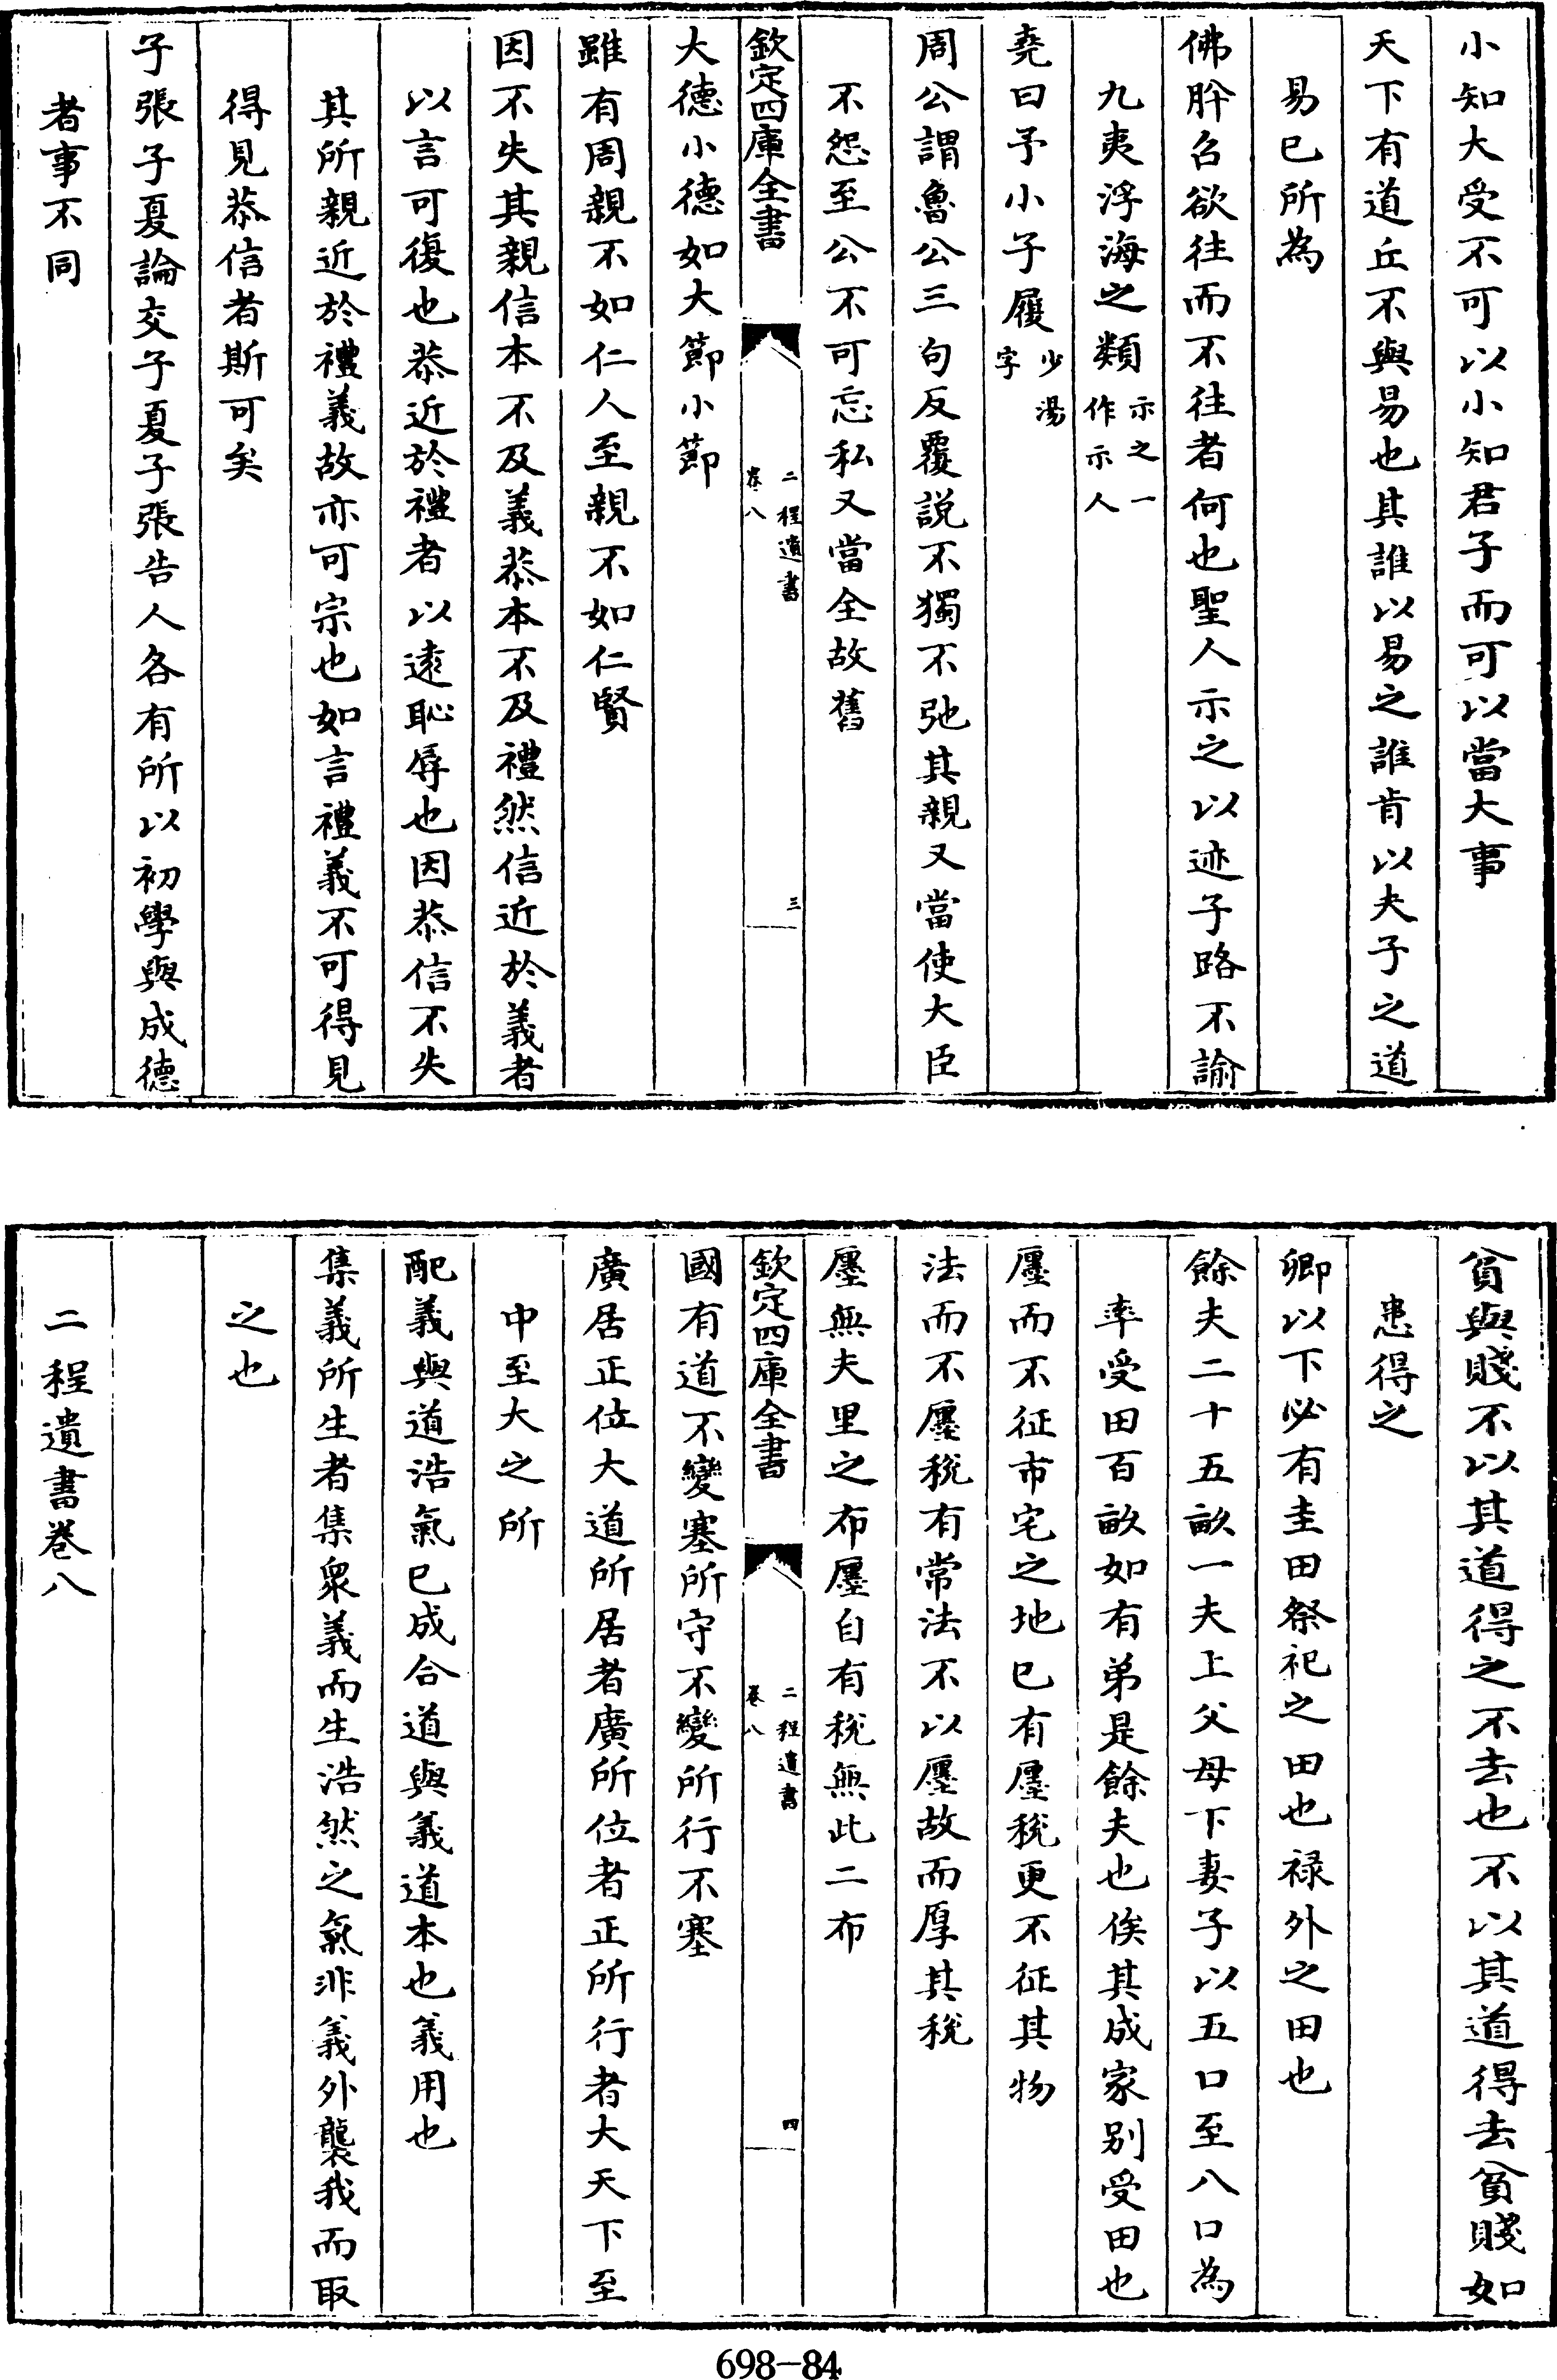 小知大受不可以小知君子而可以當大事
天下有道丘不與易也其誰以易之誰肯以夫子之道
易已所為
佛肸召欲往而不往者何也聖人示之以迹子路不諭
九夷浮海之類示之一作示人
堯曰予小子履少湯字
周公謂魯公三句反覆説不獨不弛其親又當使大臣
不怨至公不可忘私又當全故舊
欽定四庫全書
二程遺書
卷八
三
大德小德如大節小節
雖有周親不如仁人至親不如仁賢
因不失其親信本不及義恭本不及禮然信近於義者
以言可復也恭近於禮者以遠恥辱也因恭信不失
其所親近於禮義故亦可宗也如言禮義不可得見
得見恭信者斯可矣
子張子夏論交子夏子張告人各有所以初學與成德
者事不同
貧與賤不以其道得之不去也不以其道得去貧賤如
患得之
卿以下必有圭田祭祀之田也禄外之田也
餘夫二十五畝一夫上父母下妻子以五口至八口為
率受田百畝如有弟是餘夫也俟其成家别受田也
廛而不征市宅之地已有廛稅更不征其物
法而不廛稅有常法不以廛故而厚其稅
廛無夫里之布廛自有稅無此二布
欽定四庫全書
二程遺書
卷八
四
國有道不變塞所守不變所行不塞
廣居正位大道所居者廣所位者正所行者大天下至
中至大之所
配義與道浩氣已成合道與義道本也義用也
集義所生者集衆義而生浩然之氣非義外襲我而取
之也
二程遺書卷八
698-84